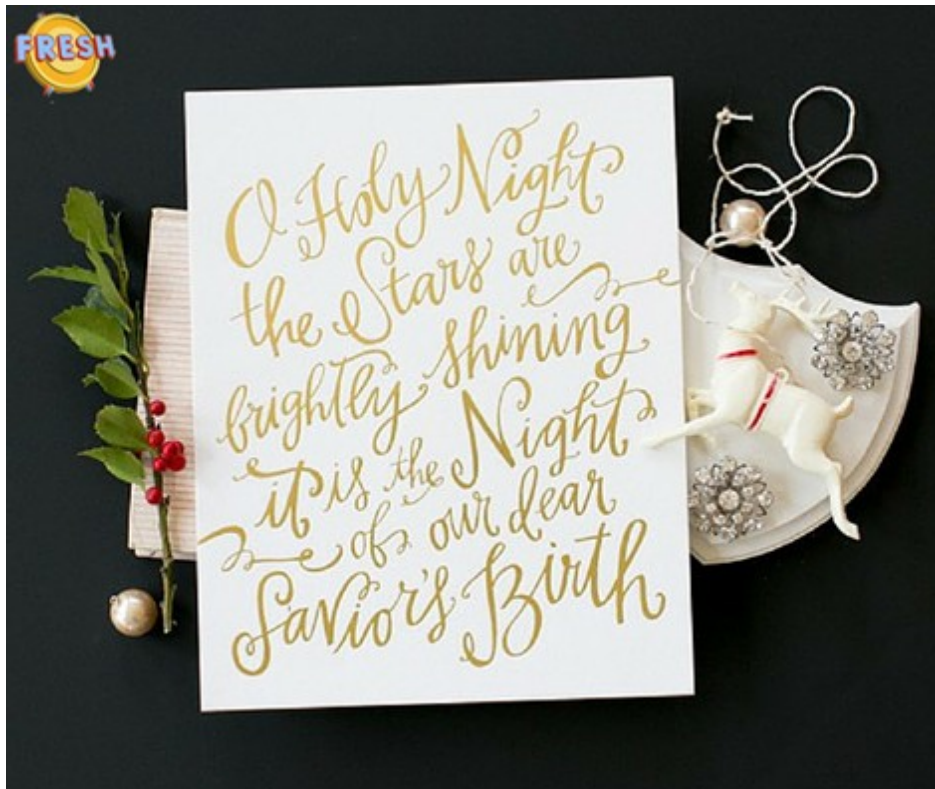 FRESH
O Holy Night
the Stars are
brightly shining
it is the Night
of our dear
Savior's Birth